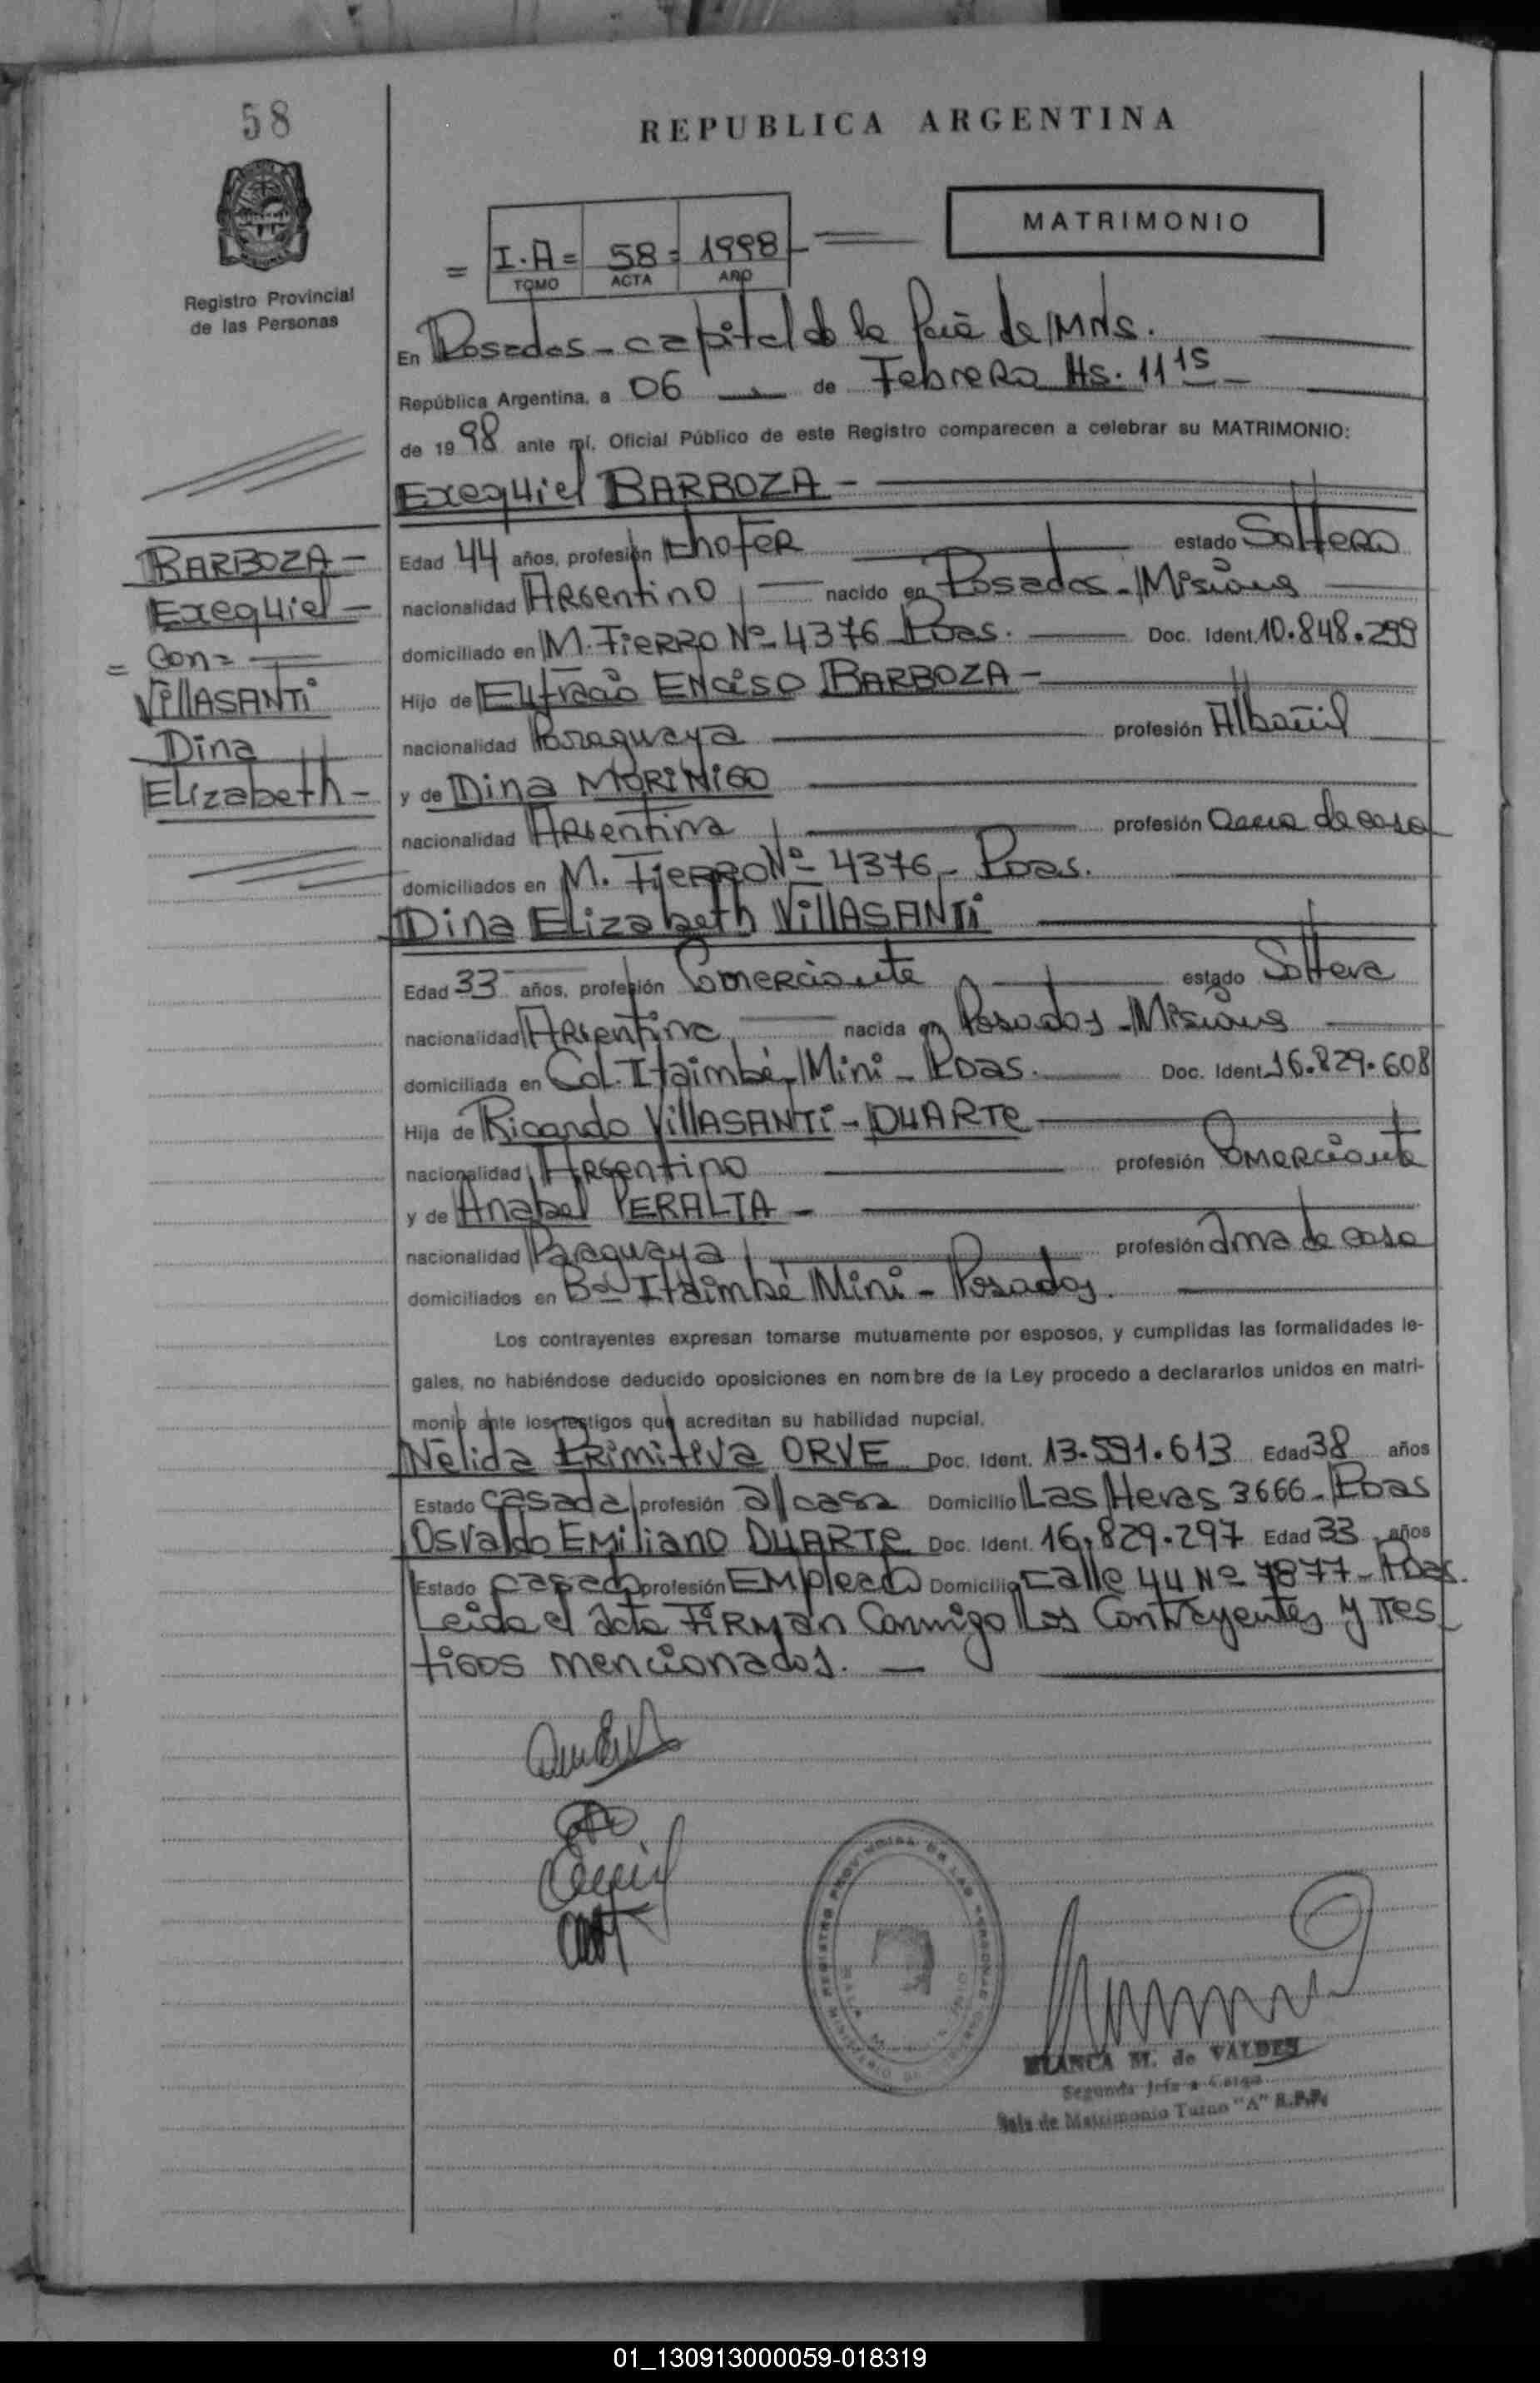 58
REPUBLICA ARGENTINA
MATRIMONIO
= I.A= 58= 1998 -
TOMO ACTA AÑO
Registro Provincial
de las Personas
En Posadas - capital de la Pcia de MNS.
República Argentina, a 06 de Febrero Hs. 11 15 -
de 19 98 ante mí, Oficial Público de este Registro comparecen a celebrar su MATRIMONIO:
Exequiel BARBOZA -
BARBOZA -
Exequiel -
= Con =
VillASANTi
Dina
Elizabeth -
Edad 44 años, profesión chofer estado Soltero
nacionalidad Argentino, nacido en Posadas - Misiones
domiciliado en M. Fierro Nº 4376 Pdas. Doc. Ident. 10.848.299
Hijo de ENCISO BARBOZA -
nacionalidad Paraguaya profesión Albañil
y de Dina MORINIGO
nacionalidad Argentina, profesión ama de casa
domiciliados en M. Fierro Nº 4376 - Pdas.
Dina Elizabeth VillASANTi
Edad 33 años, profesión Comerciante, estado Soltera
nacionalidad Argentina, nacida en Posadas - Misiones
domiciliada en Col. Itaimbé Mini - Pdas. Doc. Ident. 16.829.608
Hija de Ricardo VillASANTi - DUARTE
nacionalidad Argentino profesión Comerciante
y de Anabel PERALTA -
nacionalidad Paraguaya, profesión ama de casa
domiciliados en Bº Itaimbé Mini - Posadas.
Los contrayentes expresan tomarse mutuamente por esposos, y cumplidas las formalidades le-
gales, no habiéndose deducido oposiciones en nombre de la Ley procedo a declararlos unidos en matri-
monio ante los testigos que acreditan su habilidad nupcial.
Nélida Primitiva ORVE Doc. Ident. 13.591.613 Edad 38 años
Estado casada profesión a/casa Domicilio Las Heras 3666 - Pdas
Osvaldo Emiliano DUARTE Doc. Ident. 16.829.297 Edad 33 años
Estado casado profesión Empleado Domicilio Calle 44 Nº 7877 - Pdas.
Leida el acta FIRMan Conmigo los Contrayentes y Tes
tigos mencionados. -
REGISTRO PROVINCIAL DE LAS PERSONAS
BLANCA M. de VALDES
Segunda Jefe a Cargo
Sala de Matrimonio Turno "A" R.P.P.
01_130913000059-018319